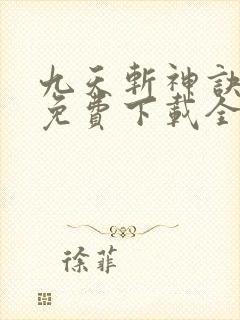 九天斬神訣
免費下載全
徐菲